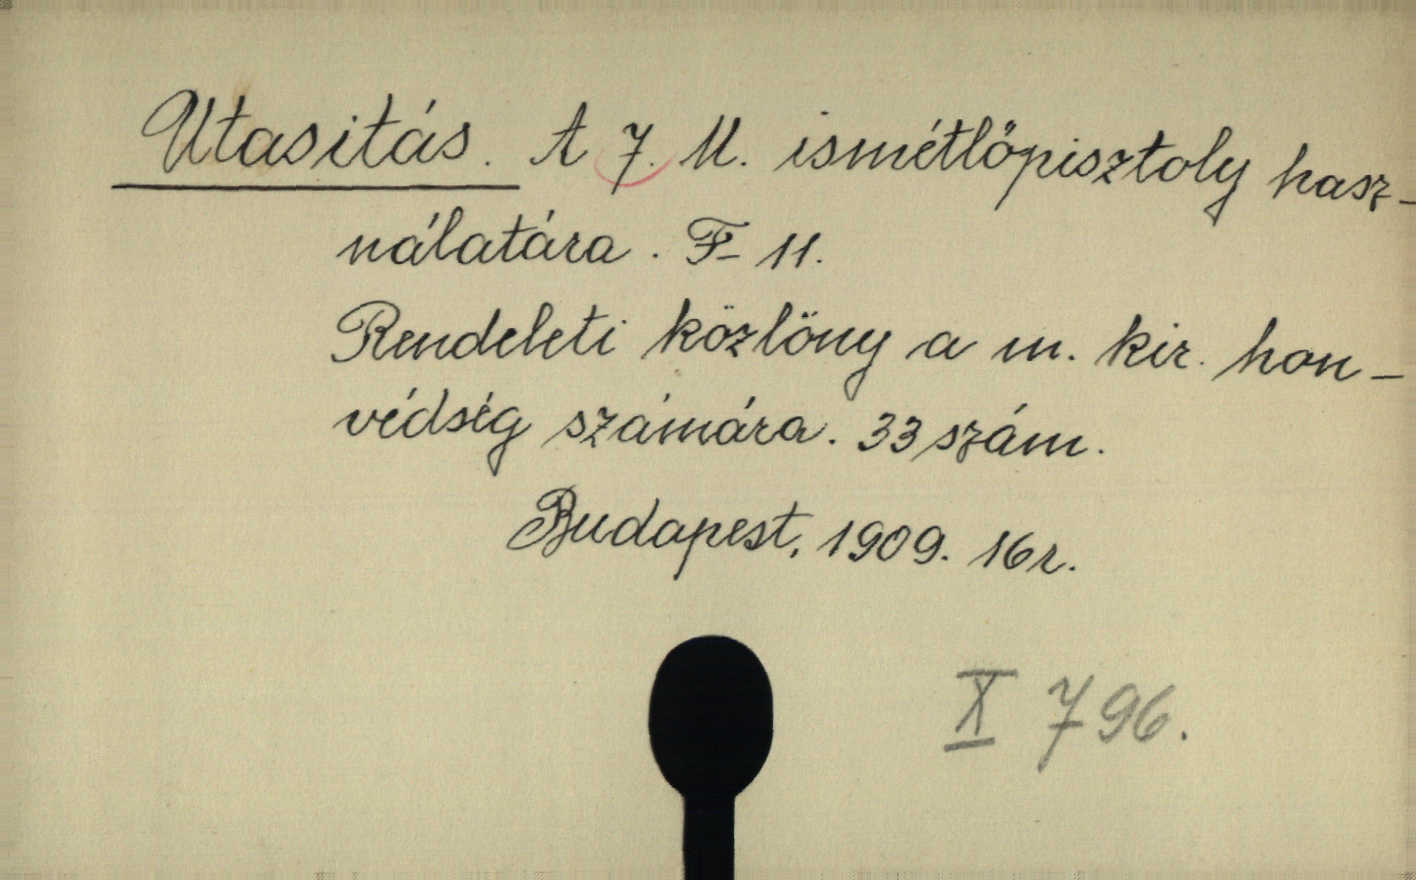 Utasitás. A 7. M. ismétlőpisztoly hasz-
nálatára. F- 11.
Rendeleti közlöny a m. kir. hon-
védség számára. 33 szám.
Budapest, 1909. 16r.
X 796.